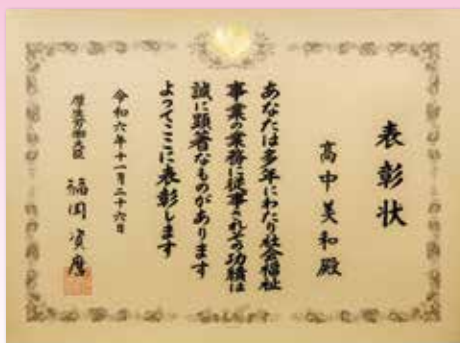 表彰状
高中美和殿
あなたは多年にわたり社会福祉
事業の業務に従事されその功績は
誠に顕著なものがあります
よってここに表彰します
令和六年十一月二十六日
厚生労働大臣 福岡資麿